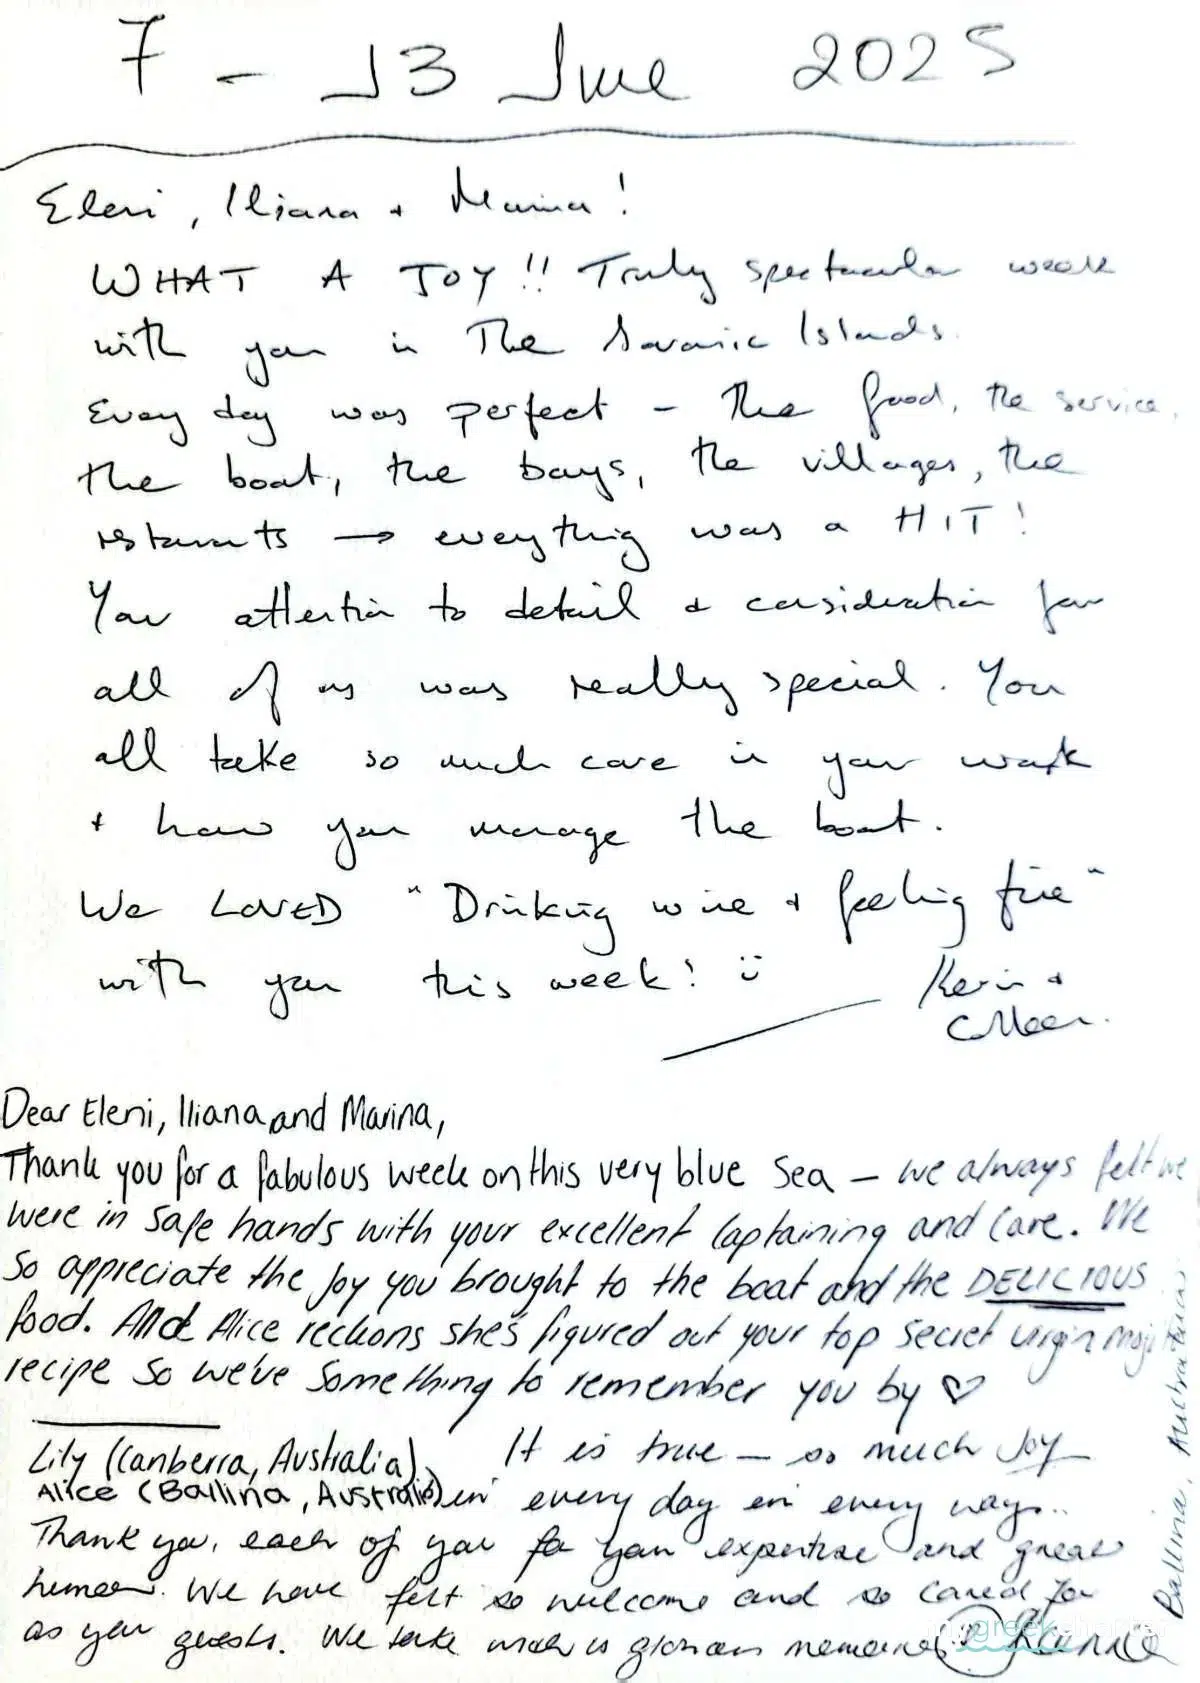 7 - 13 June 2025
Eleni, Iliana + Marina!
WHAT A JOY!! Truly spectacular week
with you in The Saronic Islands.
Every day was perfect - the food, the service,
the boat, the bays, the villages, the
restaurants → everything was a HIT!
Your attention to detail & consideration for
all of us was really special. You
all take so much care in your work
+ how you manage the boat.
We LOVED "Drinking wine + feeling fine"
with you this week! ü
Kevin +
Colleen.
Dear Eleni, Iliana and Marina,
Thank you for a fabulous week on this very blue sea – we always felt we
were in safe hands with your excellent captaining and care. We
so appreciate the joy you brought to the boat and the DELICIOUS
food. And Alice reckons she's figured out your top secret virgin moji
recipe so we've something to remember you by ♡
Lily (Canberra, Australia)
Alice (Ballina, Australia)
It is true – so much joy
in every day in every way..
Thank you, each of you for your expertise and great
humour. We have felt so welcome and so cared for
as your guests. We take with us glorious memories
Ballina, Australia
mygreekcharter